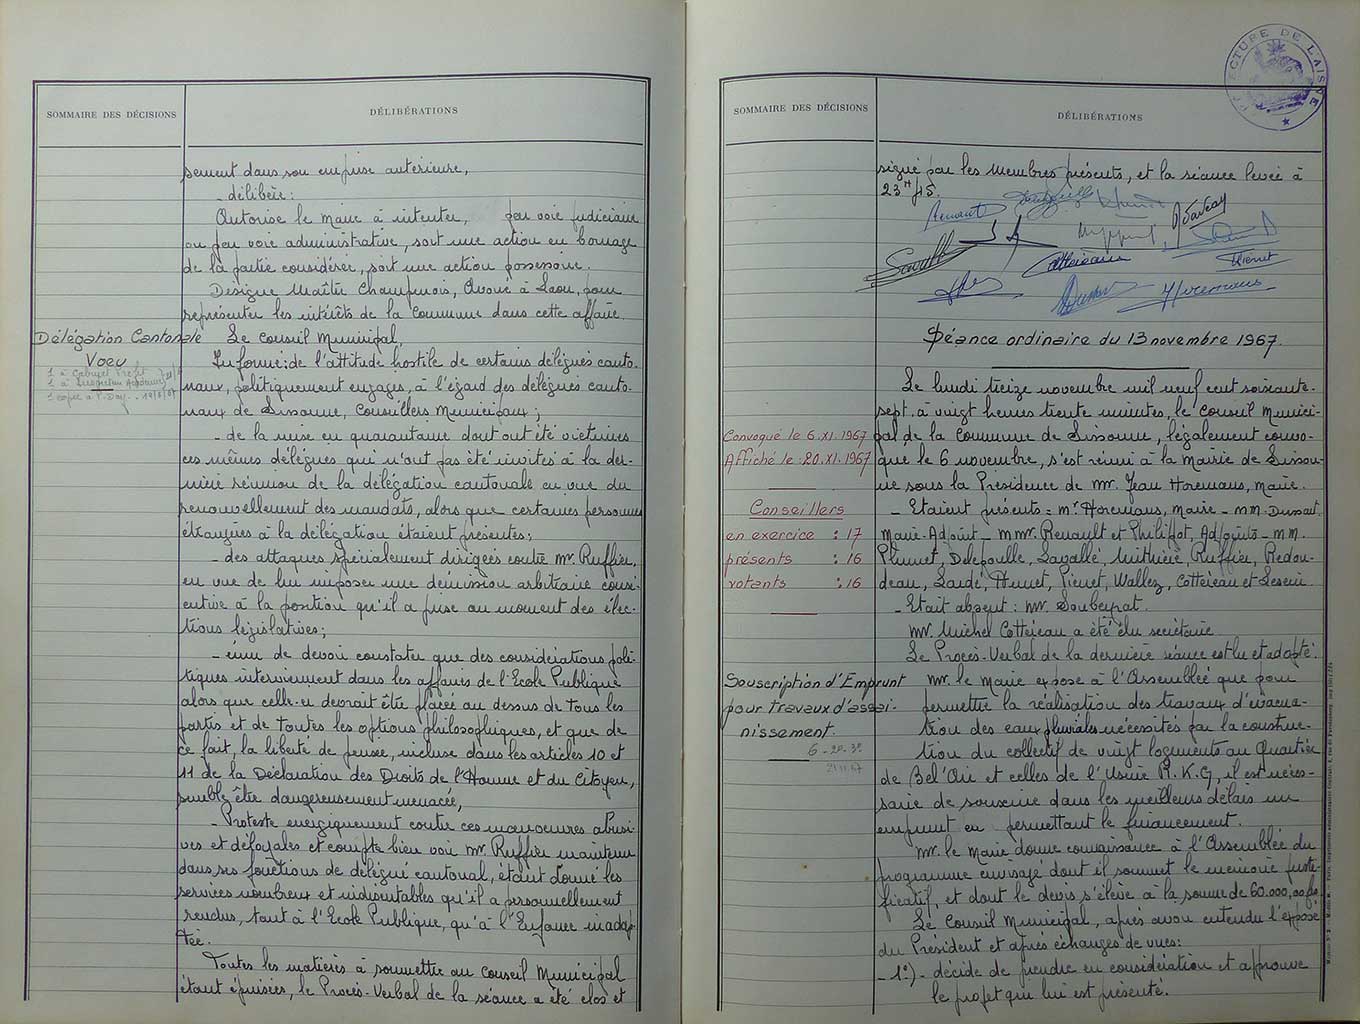 SOMMAIRE DES DÉCISIONS
DÉLIBÉRATIONS
sement dans son emprise antérieure,
- délibère:
Autorise le Maire à intenter, par voie judiciaire
ou par voie administrative, soit une action en bornage
de la partie considérée, soit une action possessoire.
Désigne Maître Champenois, Avoué à Laon, pour
représenter les intérêts de la Commune dans cette affaire.
Délégation Cantonale
Voeu
1 à Cabinet Préfet
1 à Inspection Académique
1 copie à
Le Conseil Municipal,
Informé: de l'attitude hostile de certains délégués canto-
naux, politiquement engagés, à l'égard des délégués canto-
naux de Sissonne, Conseillers Municipaux;
- de la mise en quarantaine dont ont été victimes
ces mêmes délégués qui n'ont pas été invités à la der-
nière réunion de la délégation cantonale en vue du
renouvellement des mandats, alors que certaines personnes
étrangères à la délégation étaient présentes;
- des attaques spécialement dirigées contre Mr. Ruffier,
en vue de lui imposer une démission arbitraire consé-
cutive à la position qu'il a prise au moment des élec-
tions législatives;
- ému de devoir constater que des considérations poli-
tiques interviennent dans les affaires de l'Ecole Publique
alors que celle-ci devrait être placée au dessus de tous les
partis et de toutes les options philosophiques, et que de
ce fait, la liberté de pensée, incluse dans les articles 10 et
11 de la Déclaration des Droits de l'Homme et du Citoyen,
semble être dangereusement menacée,
- Proteste energiquement contre ces manoeuvres abusi-
ves et déloyales et compte bien voir Mr. Ruffier maintenu
dans ses fonctions de délégué cantonal, étant donné les
services nombreux et indiscutables qu'il a personnellement
rendus, tant à l'Ecole Publique, qu'à l'Enfance inadap-
tée.
Toutes les matières à soumettre au Conseil Municipal
étant épuisées, le Procès-Verbal de la séance a été clos et
SOMMAIRE DES DÉCISIONS
DÉLIBÉRATIONS
PRÉFECTURE DE L'AISNE
signé par les Membres présents, et la séance levée à
23H45.
Renault
Cottereau
Pienet
Horemans
Séance ordinaire du 13 novembre 1967.
Le lundi treize novembre mil neuf cent soixante-
sept, à vingt heures trente minutes, le Conseil Munici-
Convoqué le 6.XI.1967
pal de la Commune de Sissonne, légalement convo-
Affiché le: 20.XI.1967
qué le 6 novembre, s'est réuni à la Mairie de Sisson-
ne sous la Présidence de Mr. Jean Horemans, Maire.
Conseillers
en exercice : 17
présents : 16
votants : 16
- Etaient présents = Mr Horemans, Maire - MM. Dussart
Maire-Adjoint - MMr. Renault et Philippot, Adjoints - MM.
Plumet, Delepoulle, Lavallé, Mithière, Ruffier, Redon-
deau, Lardé, Humet, Pienet, Wallez, Cottereau et
- Etait absent : Mr. Soubeyrat.
Mr. Michel Cottereau a été élu secrétaire
Le Procès-Verbal de la dernière séance est lu et adopté.
Souscription d'Emprunt
pour travaux d'assai-
nissement.
21.11.67
Mr. le Maire expose à l'Assemblée que pour
permettre la réalisation des travaux d'évacua-
tion des eaux pluviales nécessités par la construc-
tion du collectif de vingt logements au Quartier
de Bel'Air et celles de l'Usine R.K.G, il est néces-
saire de souscrire dans les meilleurs délais un
emprunt en permettant le financement.
Mr. le Maire donne connaissance à l'Assemblée du
programme envisagé dont il soumet le mémoire justi-
ficatif, et dont le devis s'élève à la somme de 60.000,00 frs
Le Conseil Municipal, après avoir entendu l'exposé
du Président et après échanges de vues:
- 1°) - décide de prendre en considération et approuve
le projet qui lui est présenté.